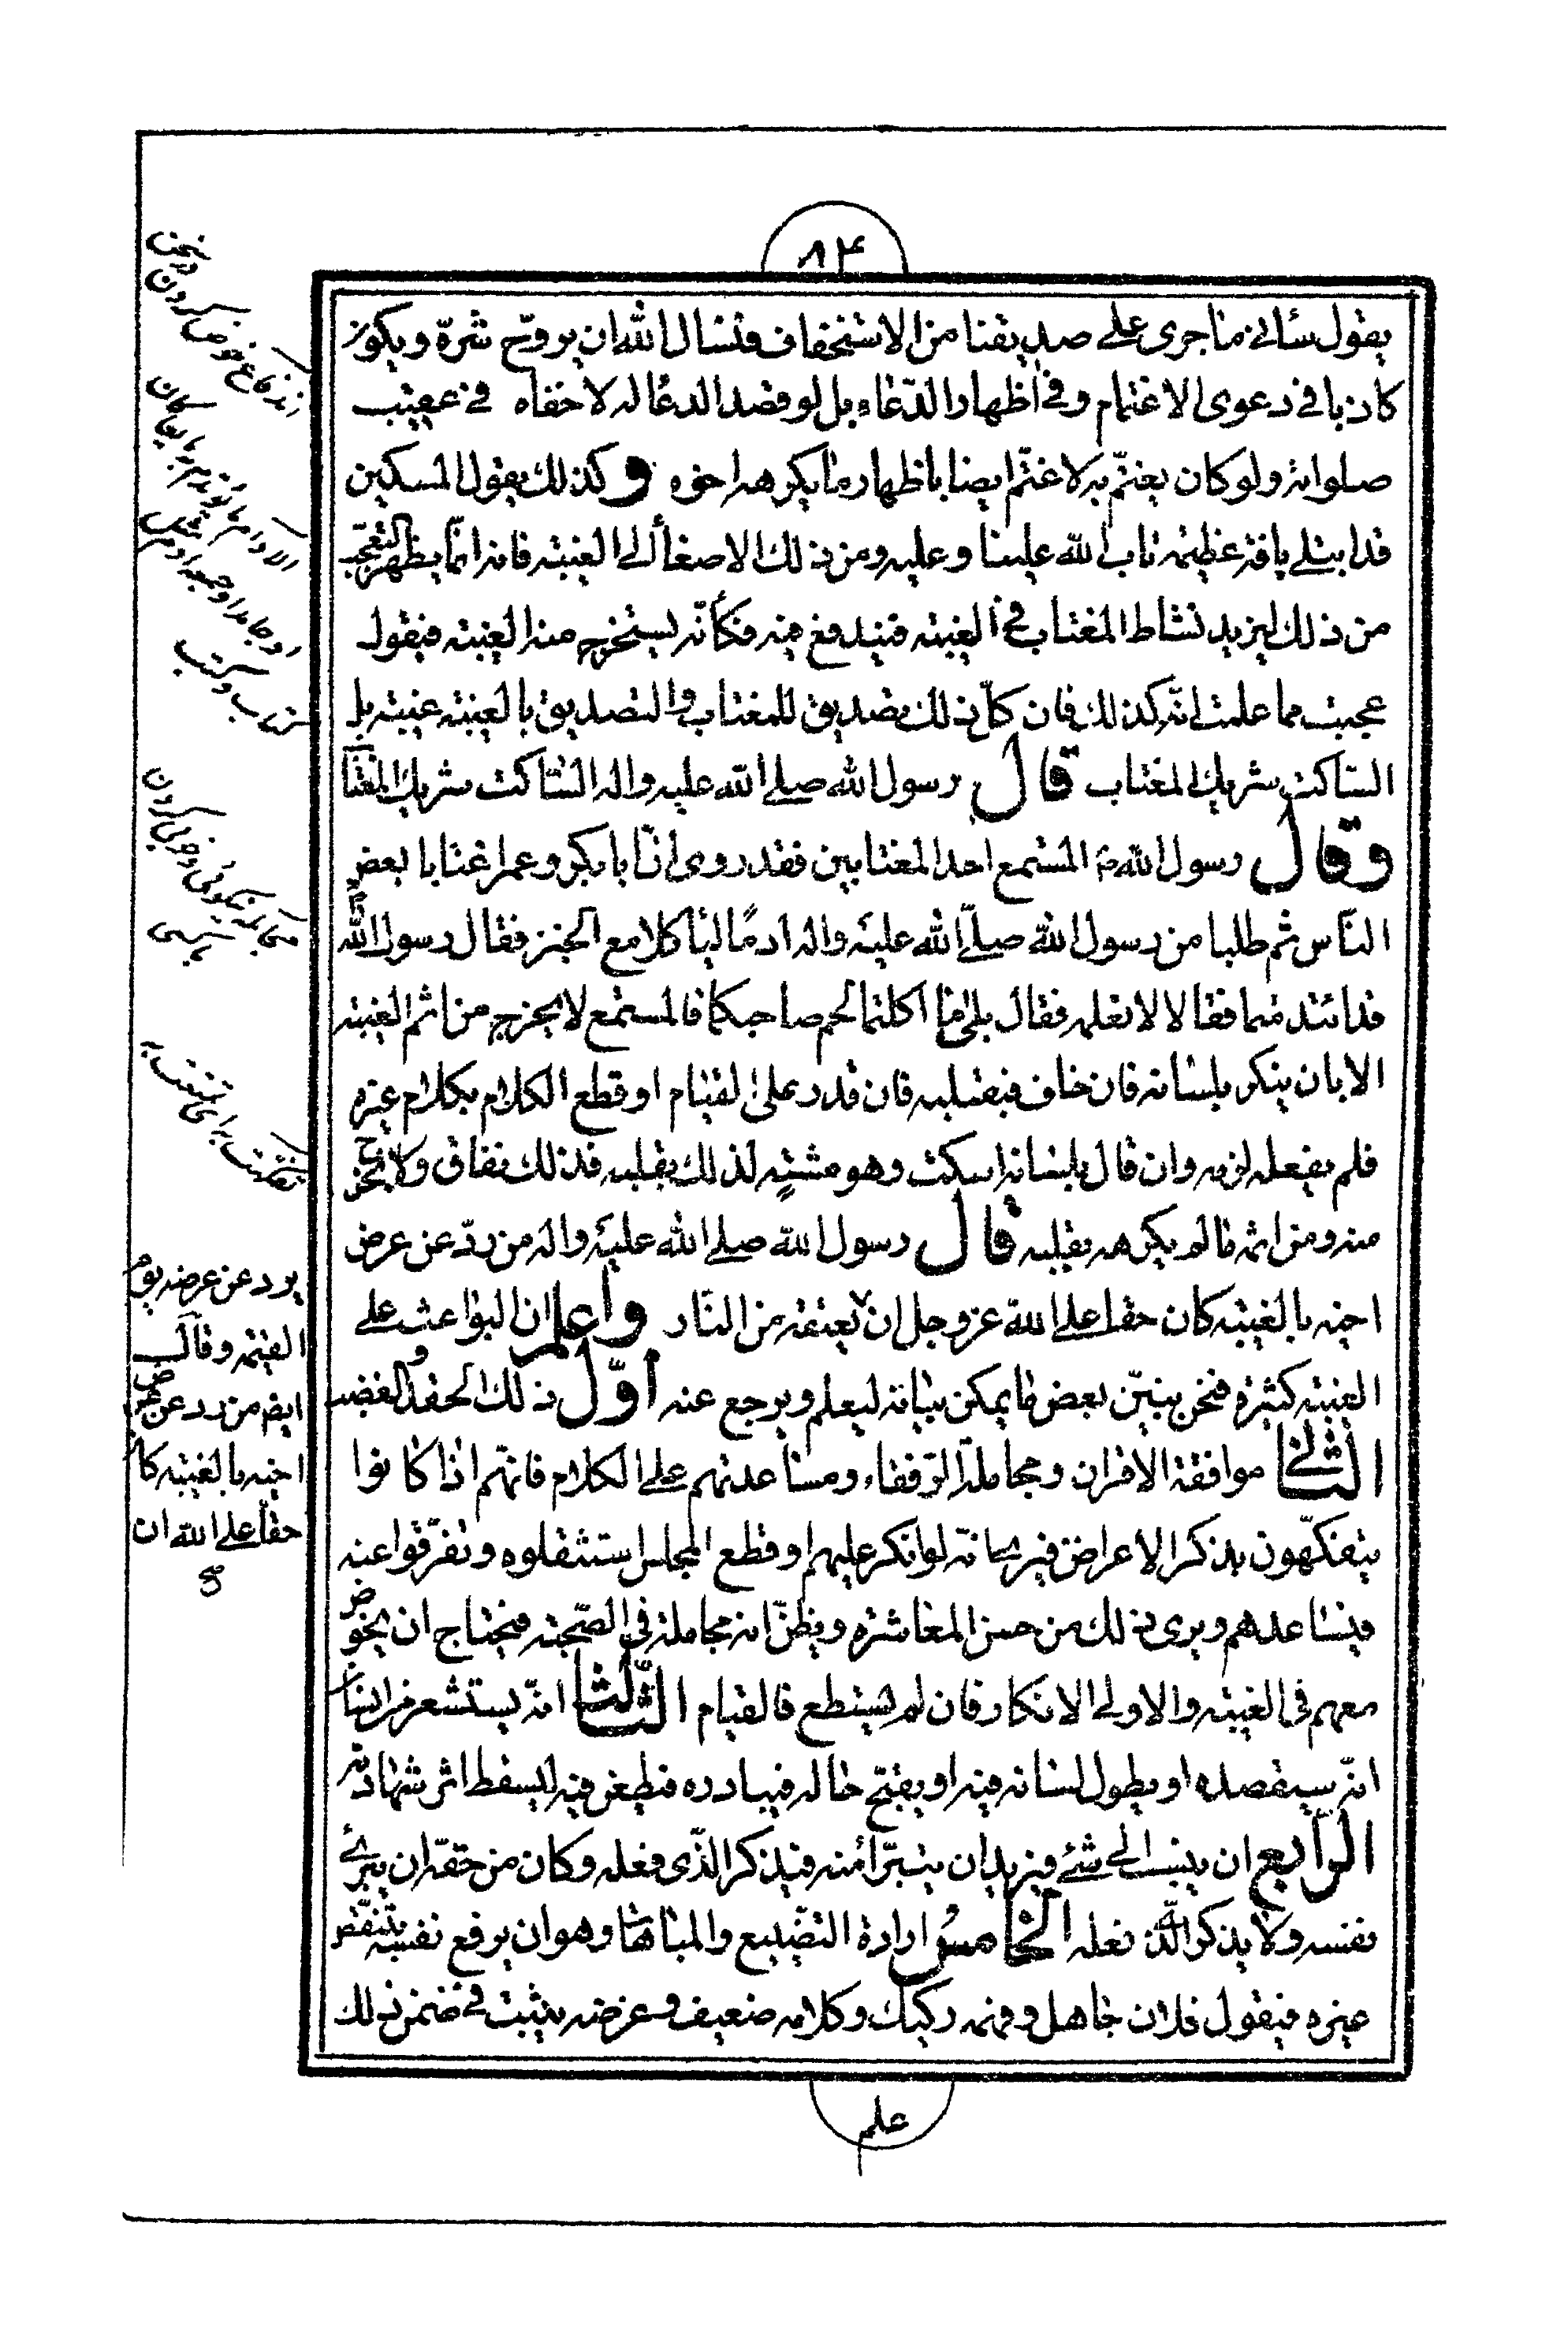 ٨٤
يقول سائنى ما جرى على صديقنا من الاستخفاف فنسال الله ان يروّح شرّه ويكون
كاذبا فى دعوى الاغتمام وفى اظهار الدّعاء بل لو قصد الدعا له لاخفاه فى عقيب
صلواته ولو كان يغتمّ به لاغتمّ ايضا باظهار ما يكرهه اخوه وكذلك يقول المسكين
قد ابتلى بافة عظيمة تاب الله علينا وعليه ومن ذلك الاصغأ الى الغيبة فانه انّما يظهر التعجّب
من ذلك ليزيد نشاط المغتاب فى الغيبة فيندفع فيه فكأنّه يستخرج منه الغيبة فيقول
عجيب مما علمت انّه كذلك فان كلّ ذلك تصديق للمغتاب والتصديق بالغيبة غيبة بل
الساكت شريك المغتاب قال رسول الله صلى الله عليه واله السّاكت شريك المغتاب
وقال رسول الله المستمع احد المغتابين فقد روى انّ ابا بكر وعمر اغتابا بعض
النّاس ثم طلبا من رسول الله صلّى الله عليه واله ادمًا ليأكلا مع الخبز فقال رسول الله
قد ائتدمتما فقالا لا نعلمه فقال بلى ما اكلتما لحم صاحبكما فالمستمع لا يخرج من اثم الغيبة
الا بان ينكر بلسانه فان خاف فبقلبه فان قدر على القيام او قطع الكلام بكلام غيره
فلم يفعله لزمه وان قال بلسانه اسكت وهو مشتهٍ لذلك بقلبه فذلك نفاق ولا يخرج
منه ومن اثمه ما لم يكرهه بقلبه قال رسول الله صلى الله عليه واله من ردّ عن عرض
اخيه بالغيبة كان حقا على الله عز وجل ان يعتقه من النّار واعلم ان البواعث على
الغيبة كثيرة فنحن نبيّن بعض ما يمكن بيانه ليعلم ويرجع عنه اوّل ذلك الحقد والغضب
الثانى موافقة الاقران ومجاملة الرّفقاء ومساعدتهم على الكلام فانهم اذا كانوا
يتفكّهون بذكر الاعراض فيرى انّه لو انكر عليهم او قطع المجلس استثقلوه ونفرّقوا عنه
فيساعدهم ويرى ذلك من حسن المعاشرة ويظنّ انه مجاملة فى الصّحبة فيحتاج ان يخوض
معهم فى الغيبة والاولى الانكار فان لم يستطع فالقيام الثّالث انه يستشعر من انسان
انّه سيقصده او يطول لسانه فيه او يقبّح حاله فيبادره فيطعن فيه ليسقط اثر شهادته
الرّابع ان ينسب الى شئ فيزيد ان يتبرّأ منه فيذكر الذّى فعله وكان من حقّه ان يبرئ
نفسه ولا يذكر الّذى فعله الخامس ارادة التصنيع والمباهاة وهو ان يرفع نفسه بتنقّص
غيره فيقول فلان جاهل وفهمه ركيك وكلامه ضعيف وغرضه يثبت فى ضمن ذلك
يرد عن عرضه يوم
القيمة وقال
ايضا من رد عن عرض
اخيه بالغيبة كان
حقا على الله ان
صح
علم